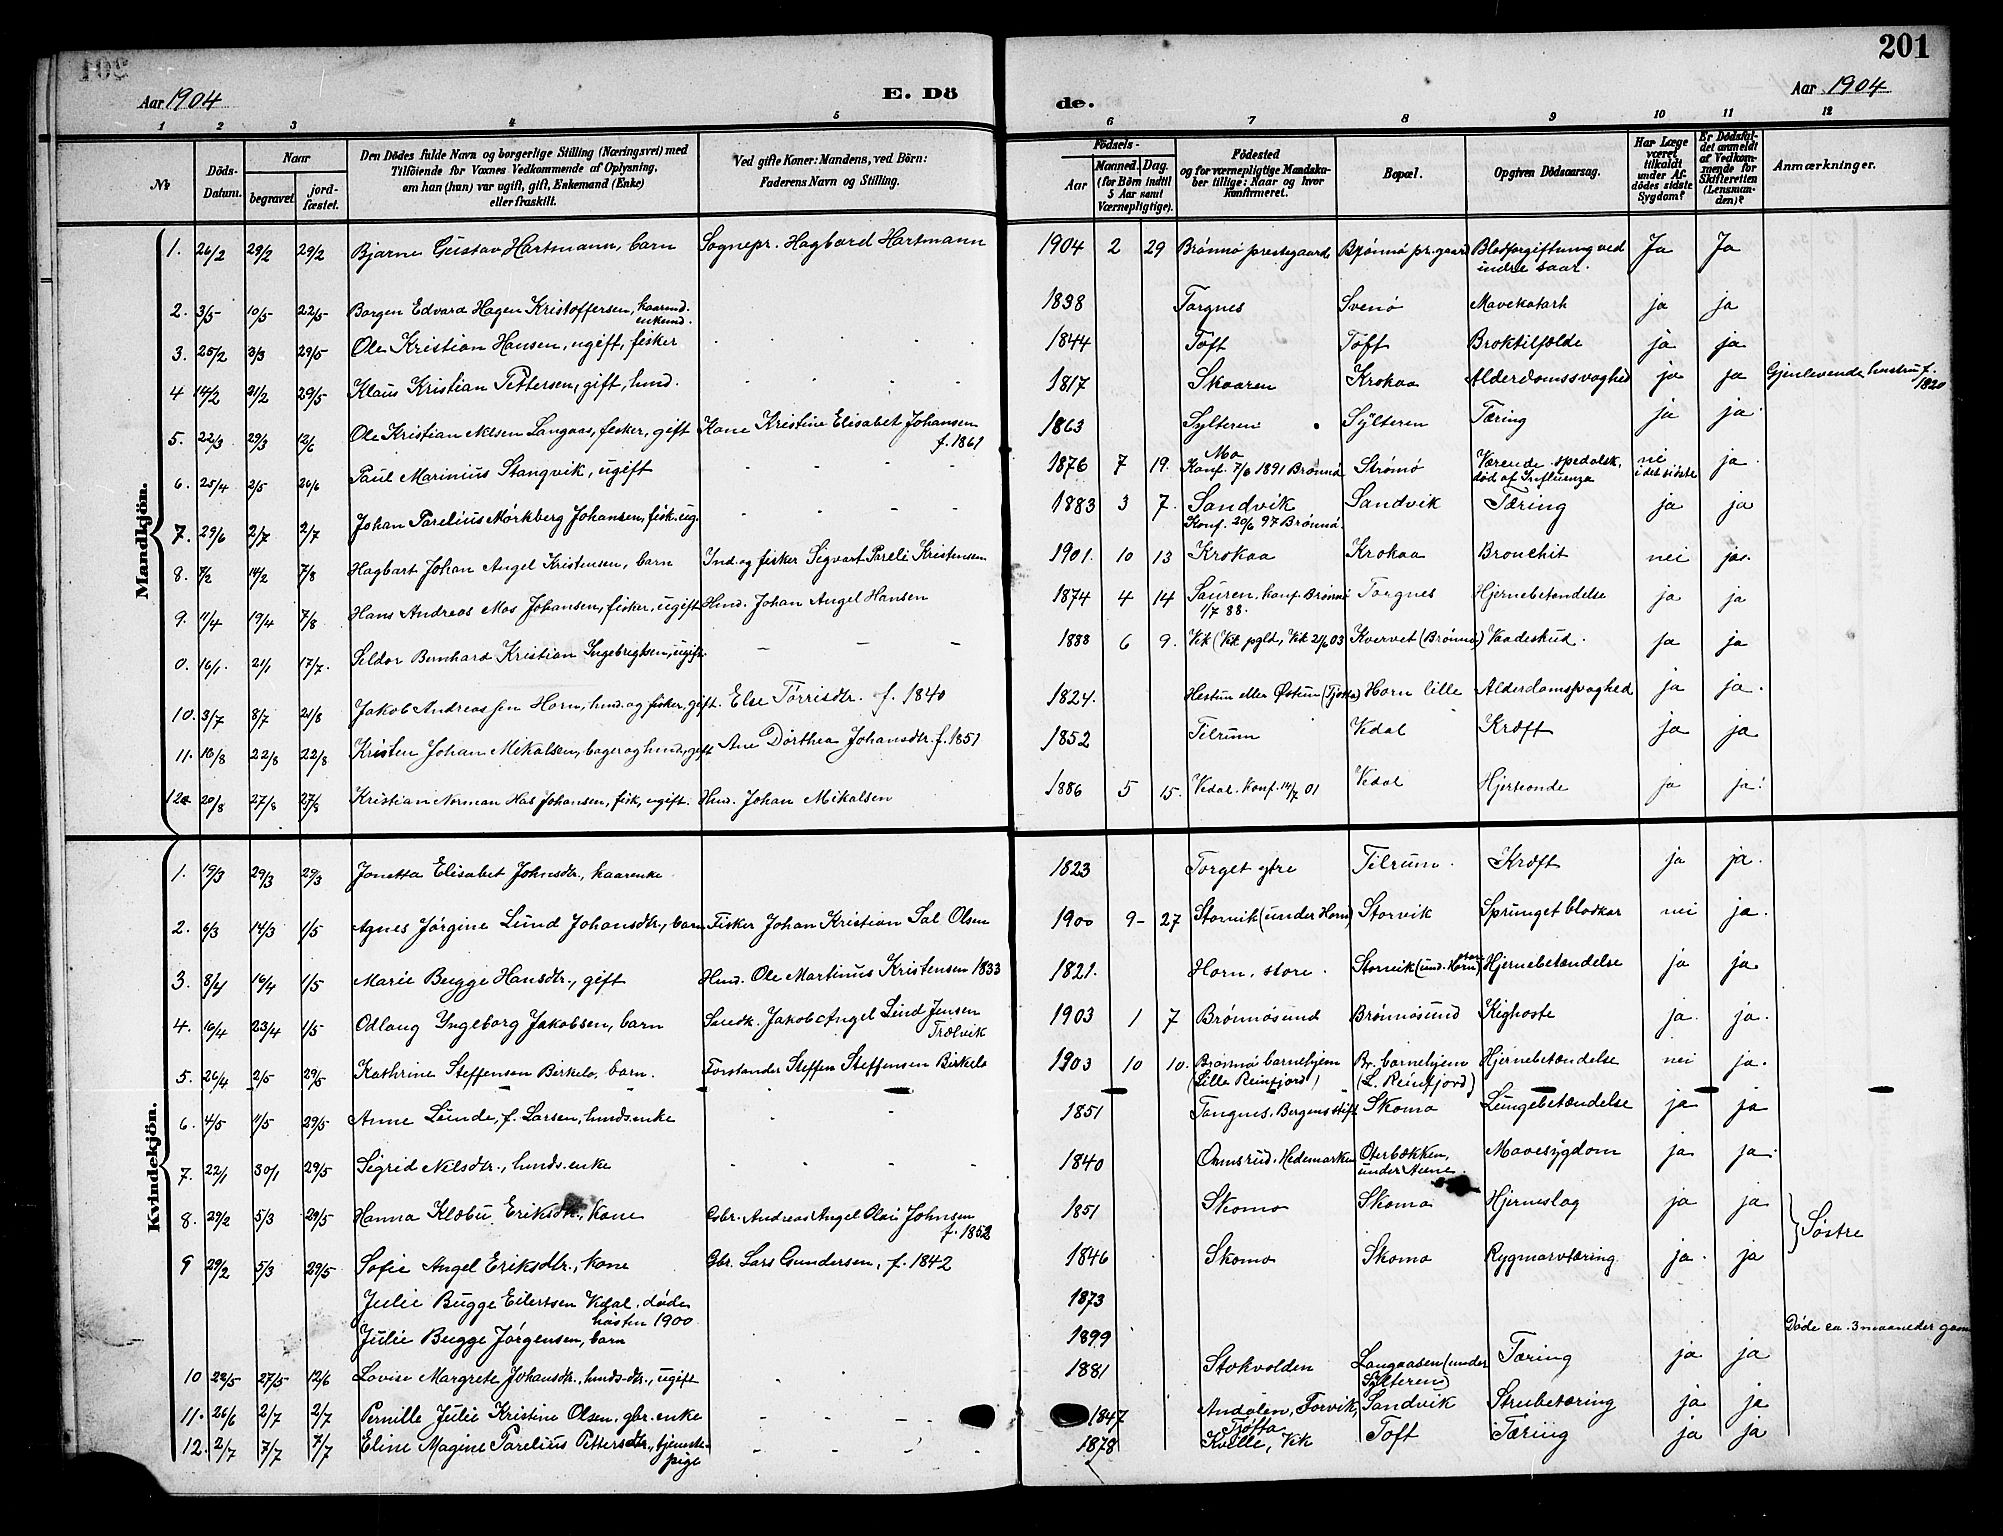 201
Aar 1904
E. Dö
de.
Aar 1904
1 2 3 4 5 6 7 8 9 10 11 12
№
Döds-Datum.
Naar
begravet.
jord-fæstet.
Den Dödes fulde Navn og borgerlige Stilling (Næringsvei) med
Tilföiende for Voxnes Vedkommende af Oplysning,
om han (hun) var ugift, gift, Enkemand (Enke)
eller fraskilt.
Ved gifte Koner: Mandens, ved Börn:
Faderens Navn og Stilling.
Födsels-
Aar
Maaned. Dag.
(for Börn indtil
5 Aar samt
Værnepligtige).
Födested
og for værnepligtige Mandska-
ber tillige: Naar og hvor
konfirmeret.
Bopæl.
Opgiven Dödsaarsag.
Har Læge
været
tilkaldt
under Af-
dödes sidste
Sygdom?
Er Dödsfal-
det anmeldt
af Vedkom-
mende for
Skifteretten
(Lensman-
den)?
Anmærkninger.
Mandkjön.
1. 26/2 29/2 29/2 Bjarne Gustav Hartmann, barn Sognepr. Hagbard Hartmann 1904 2 29 Brønnø prestegaard Brønnø pr.gaard Blodforgiftning ved Ja Ja
indre saar.
2. 3/5 10/5 22/5 Borgen Edvard Hagen Kristoffersen, kaarmd. 1838 Torgnes Svenø Mavekatarh ja ja
enkemd.
3. 25/2 3/3 29/5 Ole Kristian Hansen, ugift, fisker 1844 Toft Toft Broktilfælde ja ja
4 14/2 21/2 29/5 Klaus Kristian Pettersen, gift, hmd. 1817 Skaaren Krokaa Alderdomssvaghed ja ja Gjenlevende hustru f.
1820
5. 22/3 29/3 12/6 Ole Kristian Nilsen Langaas, fisker, gift Kone Kristine Elisabet Johansen 1863 Sylteren Sylteren Tæring ja ja.
f. 1861
6. 25/4 2/5 26/6 Paul Marinius Stangvik, ugift 1876 7 19. Mo Strømø Værende spedalsk, nei ja.
Konf. 7/6 1891 Brønnø død af Influenza i det sidste
7. 29/6 2/7 2/7 Johan Parelius Mörkberg Johansen, fisk. ug. 1883 3 7. Sandvik Sandvik Tæring ja ja
Konf. 20/6 97 Brønnø.
8. 7/2 14/2 7/8 Hagbart Johan Angel Kristensen, barn Ind. og fisker Sigvart Pareli Kristensen 1901. 10 13 Krokaa Krokaa Bronchit nei ja.
9. 11/4 19/4 7/8 Hans Andreas Mos Johansen, fisker, ugift Hmd. Johan Angel Hansen 1874 4 14 Sauren, konf. Brønnø Torgnes Hjernebetændelse ja ja
1/7 88.
0. 16/1. 21/1 17/7. Seldor Bernhard Kristian Ingebrigtsen, ugift. 1888 6 9. Vik (Vik pgld., Vik 21/6 03 Kvervet (Brønnø) Vaadeskud. ja ja
10. 3/7 8/7 21/8 Jakob Andreassen Horn, hmd. og fisker, gift. Else Torrisdtr. f. 1840 1824. Hestun eller Østun (Tjøtta) Horn lille Alderdomssvaghed ja ja.
11. 16/8 22/8 22/8 Kristen Johan Mikalsen, bager og hmd., gift Ane Dorthea Johansdtr. f. 1851 1852 Tilrum Vedal Kræft ja ja
12. 20/8 27/8 27/8 Kristian Norman Has Johansen, fisk, ugift. Hmd. Johan Mikalsen 1886 5 15. Vedal. Konf. 14/7 01 Vedal Hjerteonde ja ja.
Kvindekjön.
1. 19/3 29/3 29/3 Jonetta Elisabet Johnsdtr., kaarenke 1823 Torget ytre Tilrum. Kræft ja ja.
2. 6/3 14/3 1/5 Agnes Jørgine Lund Johansdtr., barn Fisker Johan Kristian Sal Olsen 1900 9 27 Storvik (under Horn) Storvik Sprunget blodkar nei ja.
3. 8/4 16/4 1/5 Marie Bugge Hansdtr., gift Hmd. Ole Martinus Kristensen 1833 1821. Horn, store. Storvik (und. Horn store) Hjernebetændelse ja ja.
4. 16/4 23/4 1/5 Odlaug Yngeborg Jakobsen, barn Snedk. Jakob Angel Lind Jensen 1903 1 7 Brønnøsund Brønnøsund Kighoste ja. ja.
Trælvik
5. 26/4 2/5 29/5 Kathrine Steffensen Birkelo, barn. Forstander Steffen Steffensen Birkelo 1903 10 10. Brønnø barnehjem Br. barnehjem Hjernebetændelse nei ja.
(Lille Reinfjord) (L. Reinfjord)
6. 4/5 11/5 29/5 Anne Lunde, f. Larsen, hmds. enke 1851 Tangnes. Bergens stift Skomo Lungebetændelse ja ja
7. 22/1 30/1 29/5 Sigrid Nilsdtr., hmds. enke 1840 Omsrud. Hedemarken Oterbækken, Mavesygdom ja ja.
8. 29/2 5/3 29/5 Hanna Klæbu Eriksdtr., kone Gbr. Andreas Angel Olai Johnsen 1851 Skomo Skomo Hjerneslag ja ja
f. 1852
} Søstre
9 29/2 5/3 29/5 Sofie Angel Eriksdtr., kone Gbr. Lars Gundersen, f. 1842 1846 Skomo Skomo Rygmarvtæring ja. ja
Julie Bugge Eilertsen Vedal. døde 1873
høsten 1900
Julie Bugge Jørgensen, barn 1899 Døde ca. 3 maaneder gam
10 22/5 27/5 12/6 Lovise Margrete Johansdtr., hmds-dtr., ugift 1881 Stokvolden Langaasen (under Tæring ja ja
Sylteren)
11. 26/6 2/7 2/7 Pernille Julie Kristine Olsen, gbr. enke 1847 Andalen, Forvik, Sandvik Strubetæring ja ja
Trøfta
12. 2/7 7/7 7/7 Eline Magine Parelius Pettersdtr., tjeneste- 1878 Kville, Vik Toft Tæring ja ja
pige